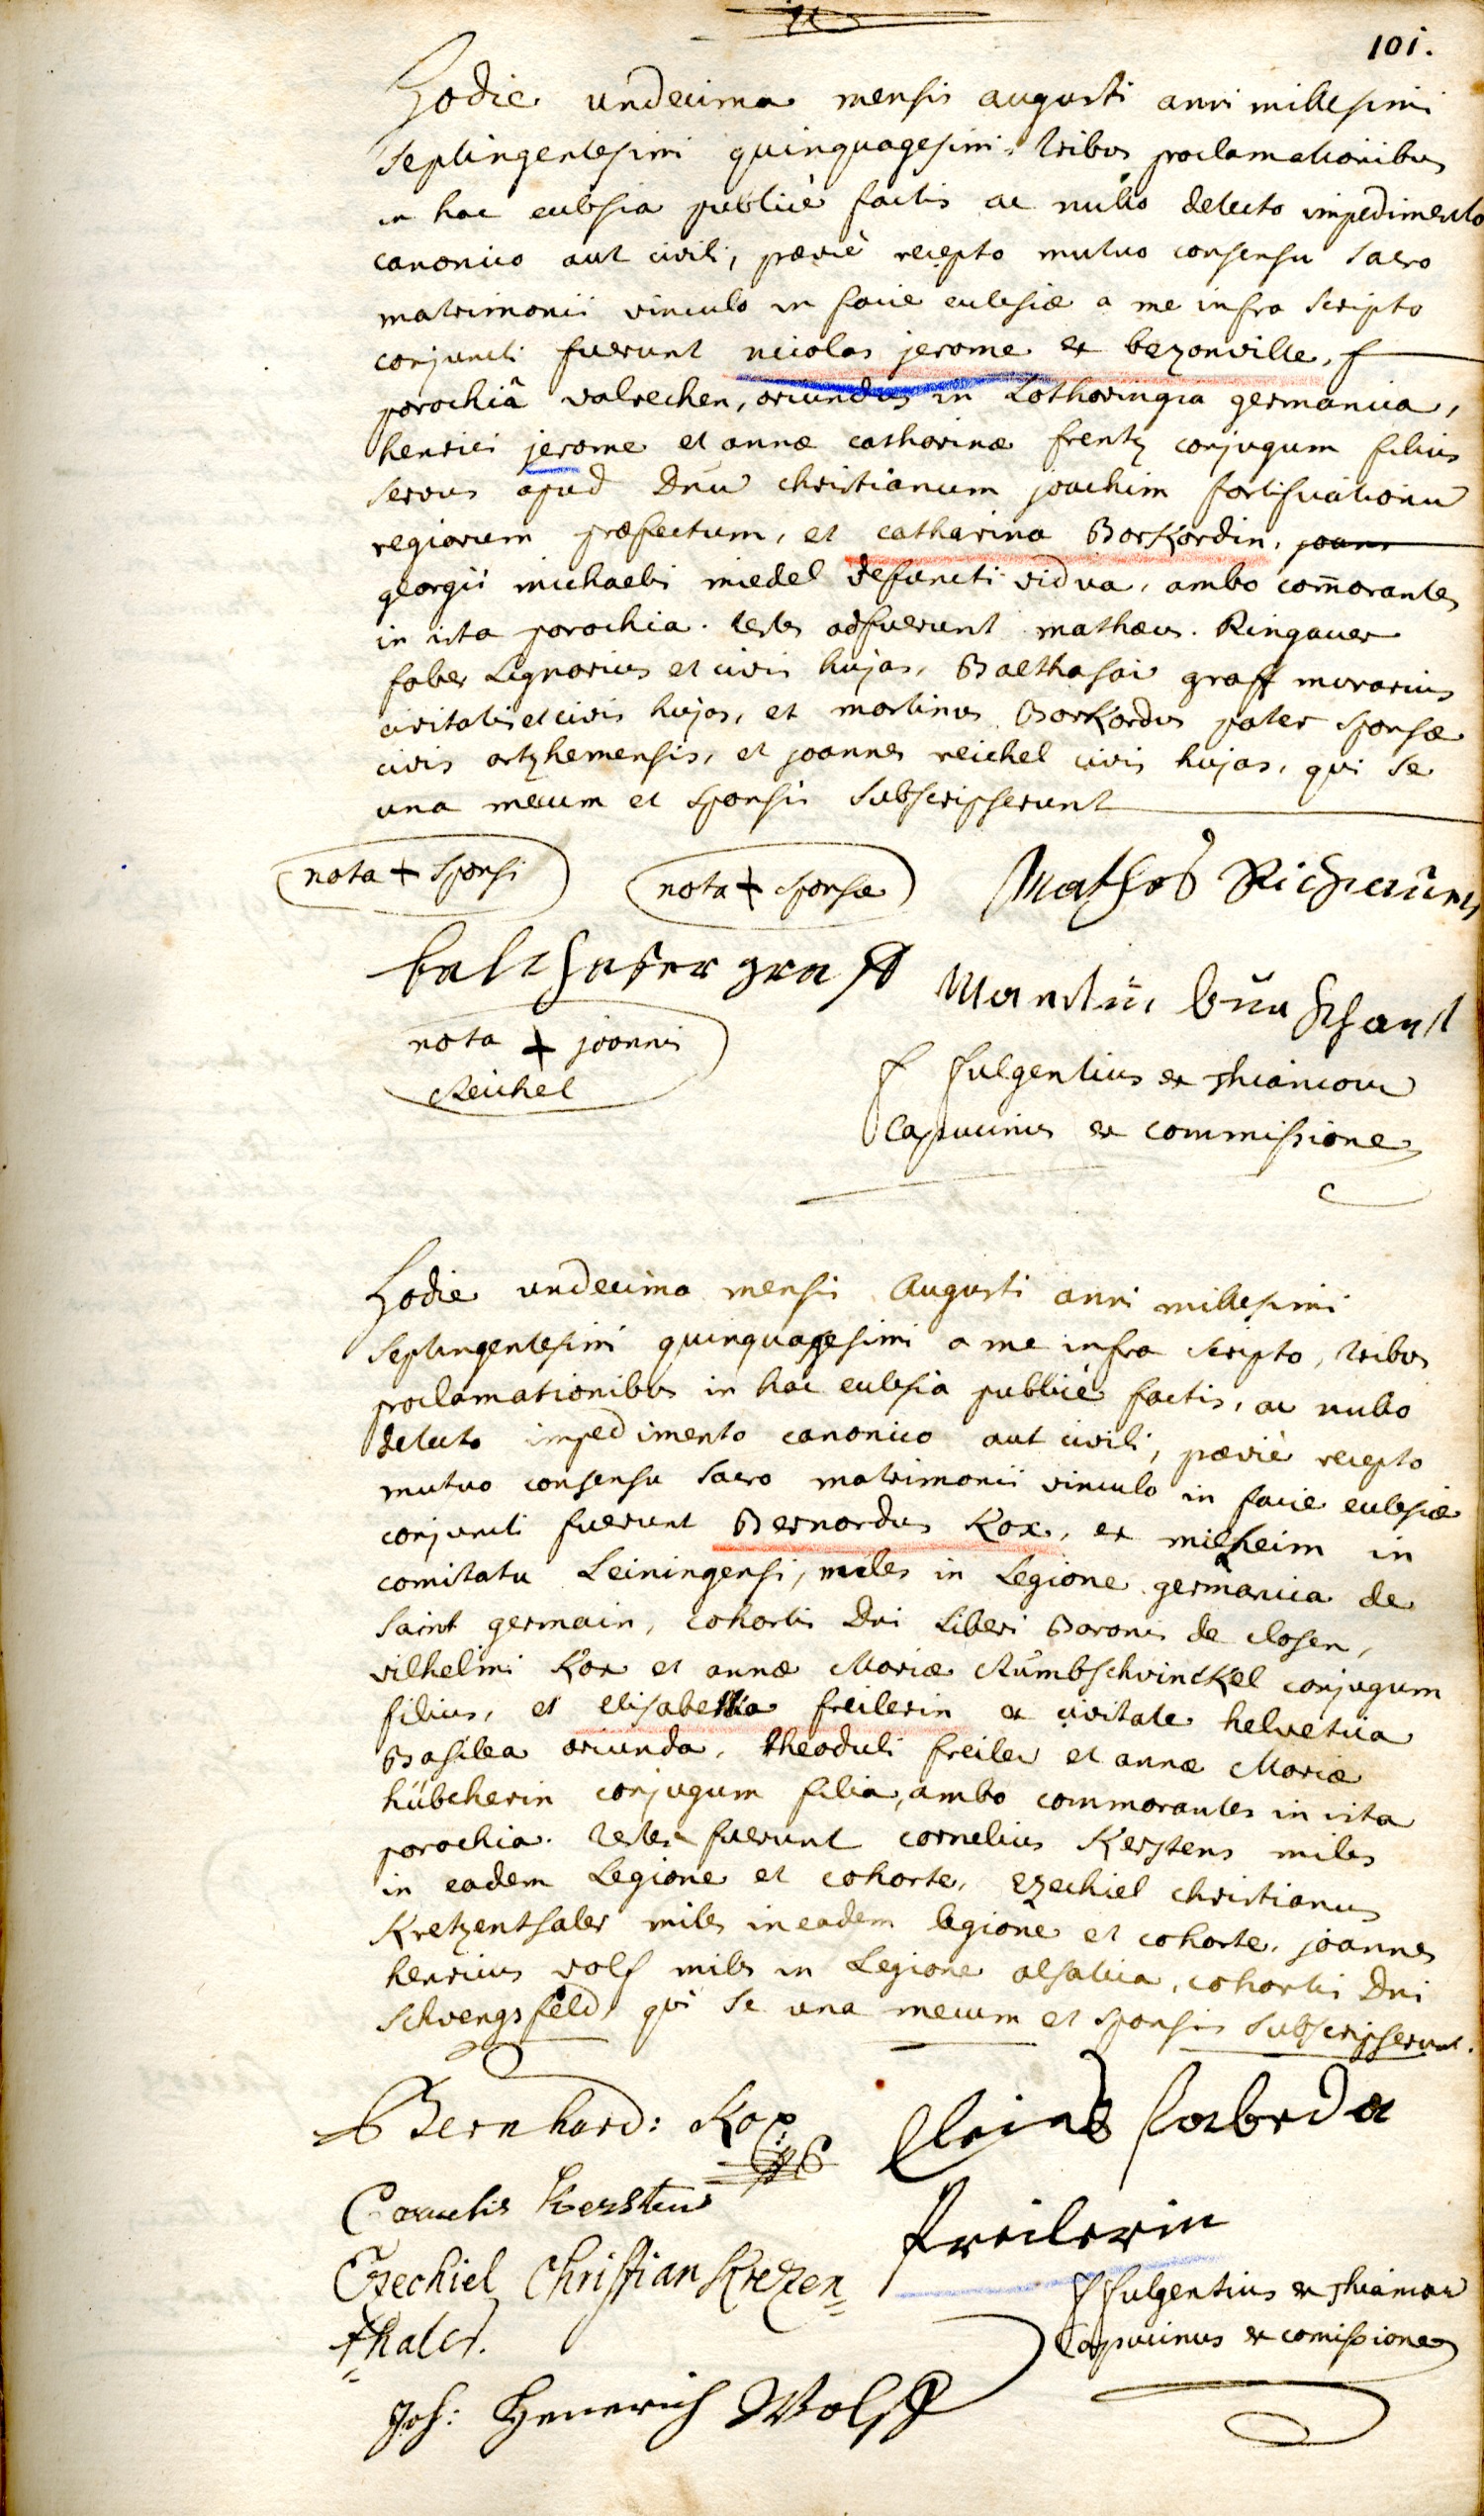 101.
Hodie undecima mensis augusti anni millesimi
septingentesimi quinquagesimi, tribus proclamationibus
in hac eclesia publicè factis ac nullo detecto impedimento
canonico aut civili, prævie recepto mutuo consensu sacro
matrimonii vinculo in facie eclesiæ a me infra scripto
conjuncti fuerunt nicolas jerome ex bezonville, f
parochiâ valrechen, oriundus in Lotharingia germanica,
henrici jerome et annæ catharinæ frentz conjugum filius
servus apud Dnu christianum joachim fortificationu
regiarum præfectum, et catharina Borkordin, joann
georgii michaelis miedel defuncti vidua, ambo comorantes
in ista parochia. testes adfuerunt mathæus. Ringauer
faber Lignarius et civis hujas, Balthasar graff murarius
civitatis et civis hujas, et martinus Borkordus pater sponsæ
civis artzhemensis, et joannes reichel civis hujas, qui se
una mecum et sponsis subscripserunt
nota + sponsi
nota + sponsæ
balthaser graff
nota + joannis
Reichel
f fulgentius ex
Capucinus ex commissione
Hodie undecima mensis Augusti anni millesimi
septingentesimi quinquagesimi a me infra scripto, tribus
proclamationibus in hac eclesia publicè factis, ac nullo
detecto impedimento canonico aut civili, prævie recepto
mutuo consensu sacro matrimonii vinculo in facie eclesiæ
conjuncti fuerunt Bernardus Kox, ex milheim in
comitatu Leiningensi, miles in Legione germanica de
saint germain, cohortis Dni Liberi Baronis de closen,
vilhelmi Kox et annæ Mariæ Rumbschvinckel conjugum
filius, et elisabetha freilerin ex civitate helvetica
Basilea oriunda, theoduli freiler et annæ Mariæ
hübcherin conjugum filia, ambo commorantes in ista
parochia. testes fuerunt cornelius Kerstens miles
in eadem Legione et cohorte, ezechiel christianus
Kretzenthaler miles in eadem legione et cohorte, joannes
henricus volf miles in Legione alsatica, cohortis Dni
Schvengsfeld, qui se una mecum et sponsis subscripserunt.
Bernhard: Kox
Cornelis Kerstens
freilerin
Ezechiel Christian Krezen=
thaler.
f fulgentius ex
Capucinus ex comissione
Joh: Henerich Wolff